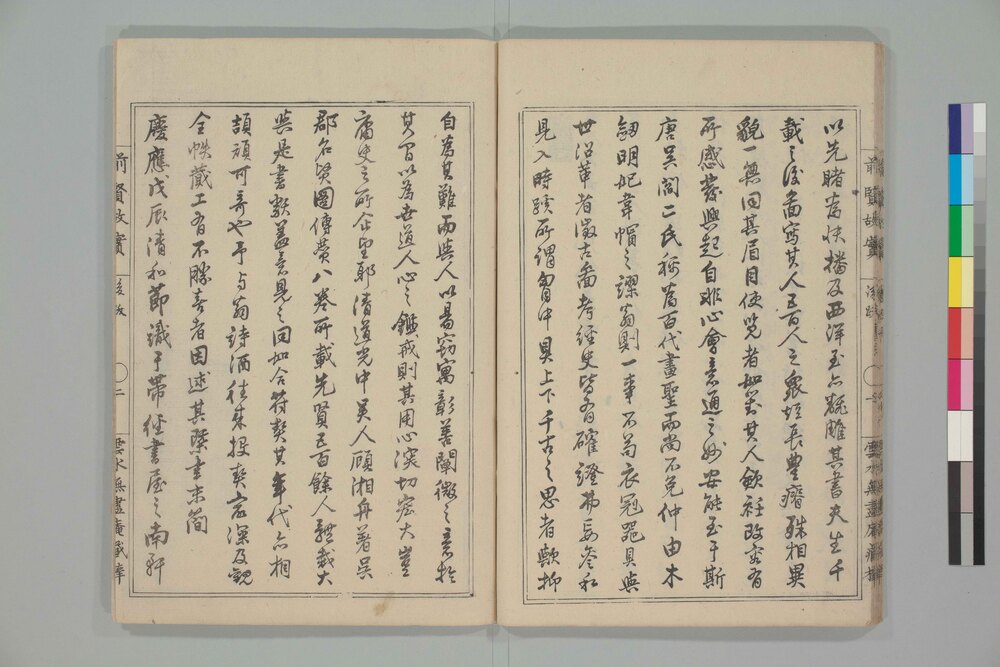 以先睹為快播及西洋玉亦翻雕其書夫生千
載之後而寫其人五百人之衆短長豐瘠殊相異
貌一無同其眉目使览者如對其人斂衽改容有
所感發興起自非心會意通之妙安能至于斯
唐吴閻二氏称為百代畫聖而尚不免仲由木
劒明妃韋帽之謬翁則一事不苟衣冠器具與
世沿革者徵古畫考經史皆有確證弗妄參私
見入時蹊所謂胷中具上下千古之思者歟抑
自為其難而與人以易竊寓彰善闡微之意於
其間以為世道人心之鑑戒則其用心深切宏大豈
庸史之所企望耶清道光中吴人顧湘舟著吴
郡名賢圖傳賛八卷所載先賢五百餘人體裁大
與是書類盖意見之同如合符契其年代亦相
頡頏可奇也予与翁詩酒往来投契최深及觀
全帙蔵工有不勝喜者因述其槩書末簡
慶應戊辰清和節識于帶經書屋之南軒
前賢故實
後敍
一
雲水無盡庵藏
前賢故實
後敍
二
雲水無盡庵藏梓